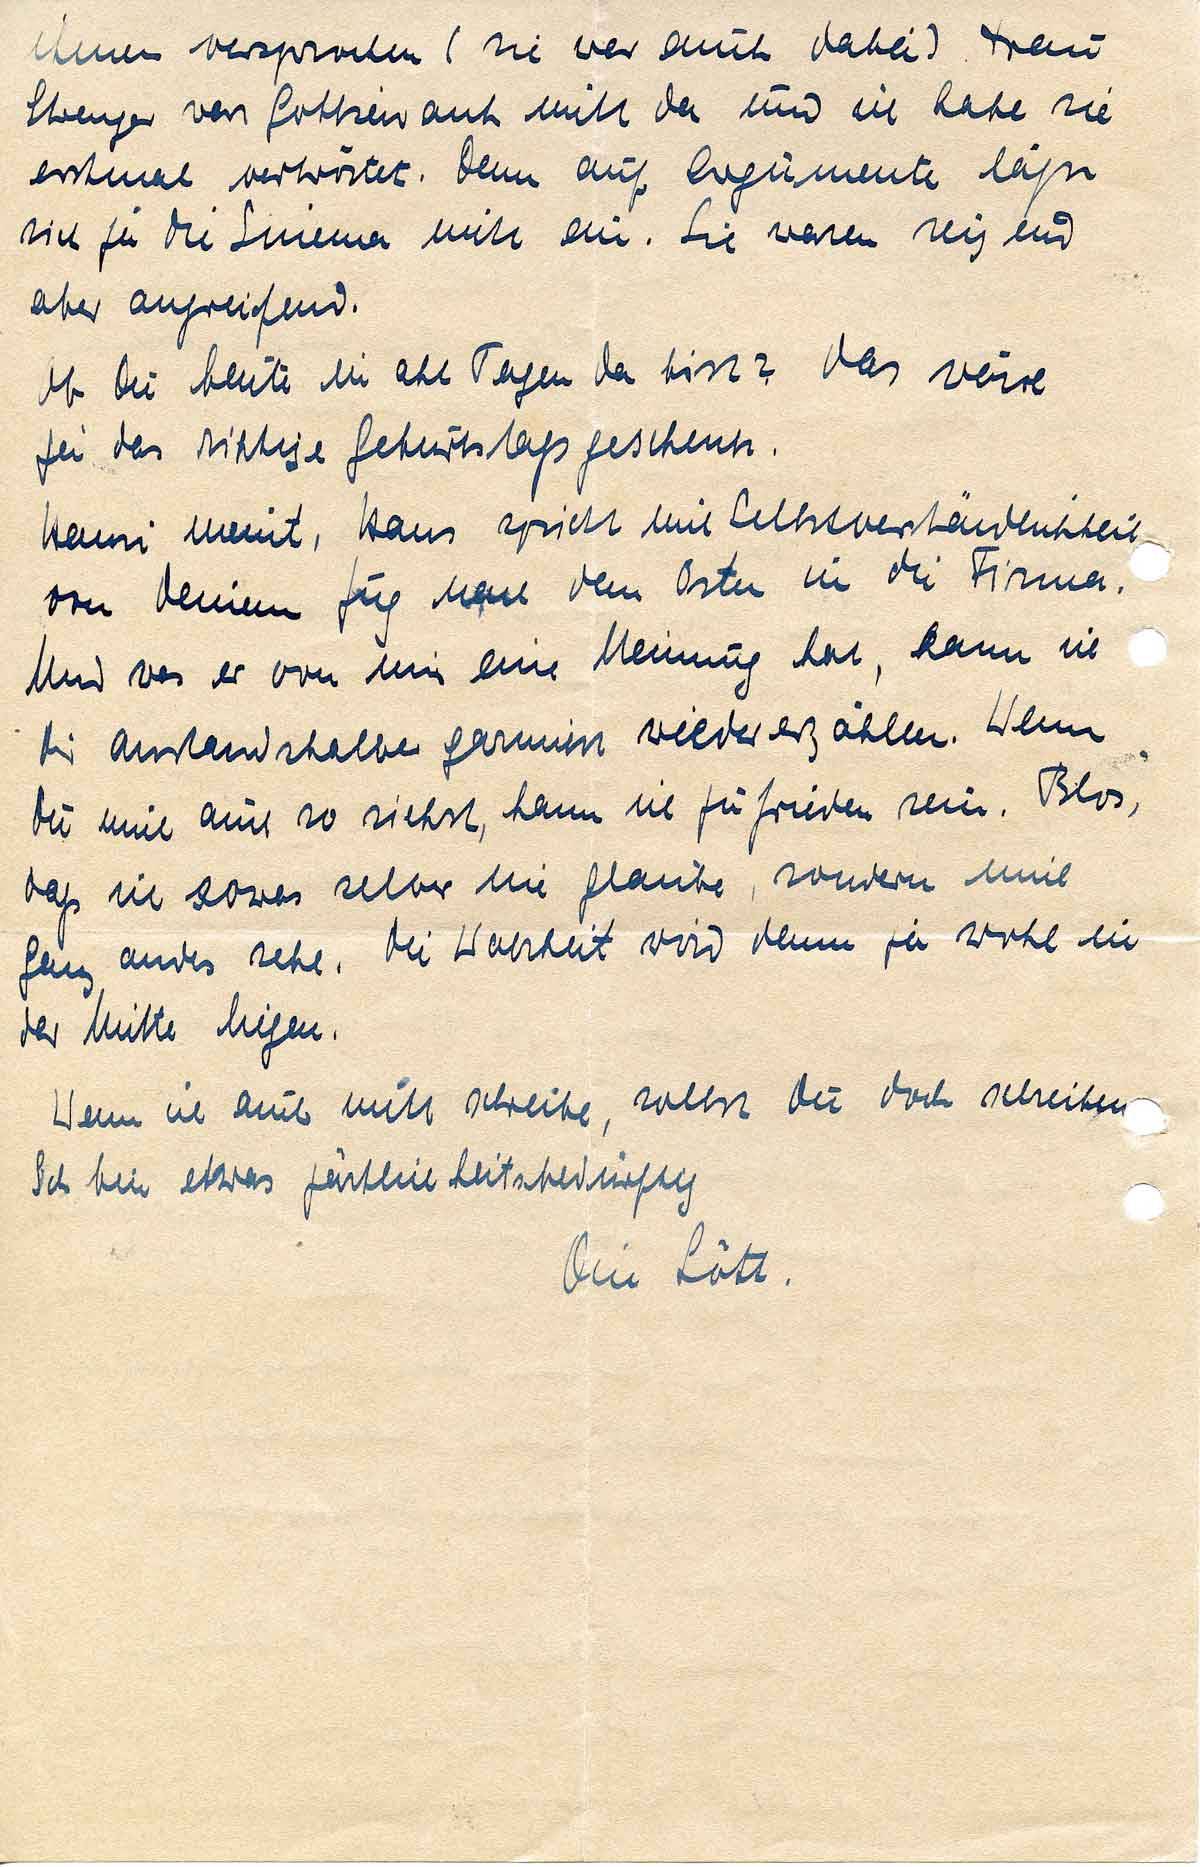 ihnen versprochen (sie war auch dabei) Frau
Stwenger war Gottseidank nicht da und ich habe sie
erstmal vertröstet. Denn auf Argumente lässt
sich ja die nicht ein. Sie waren reizend
aber angreifend.
Ob Du heute in acht Tagen da bist? Das wäre
ja das richtige Geburtstagsgeschenk.
Hansi meint, Hans spricht mit Selbstverständlichkeit
von Deinem Zug nach dem Osten in die Firma.
Und was er von mir eine Meinung hat, kann ich
Dir anstandshalber garnicht wiedererzählen. Wenn
Du mich auch so siehst, kann ich zufrieden sein. Blos,
dass ich sowas selber nie glaube, sondern mich
ganz anders sehe. Die Wahrheit wird denn ja wohl in
der Mitte liegen.
Wenn ich auch nicht schreibe, sollst Du doch schreiben
Ich bin etwas zärtlichkeitsbedürftig
Dein Lött.